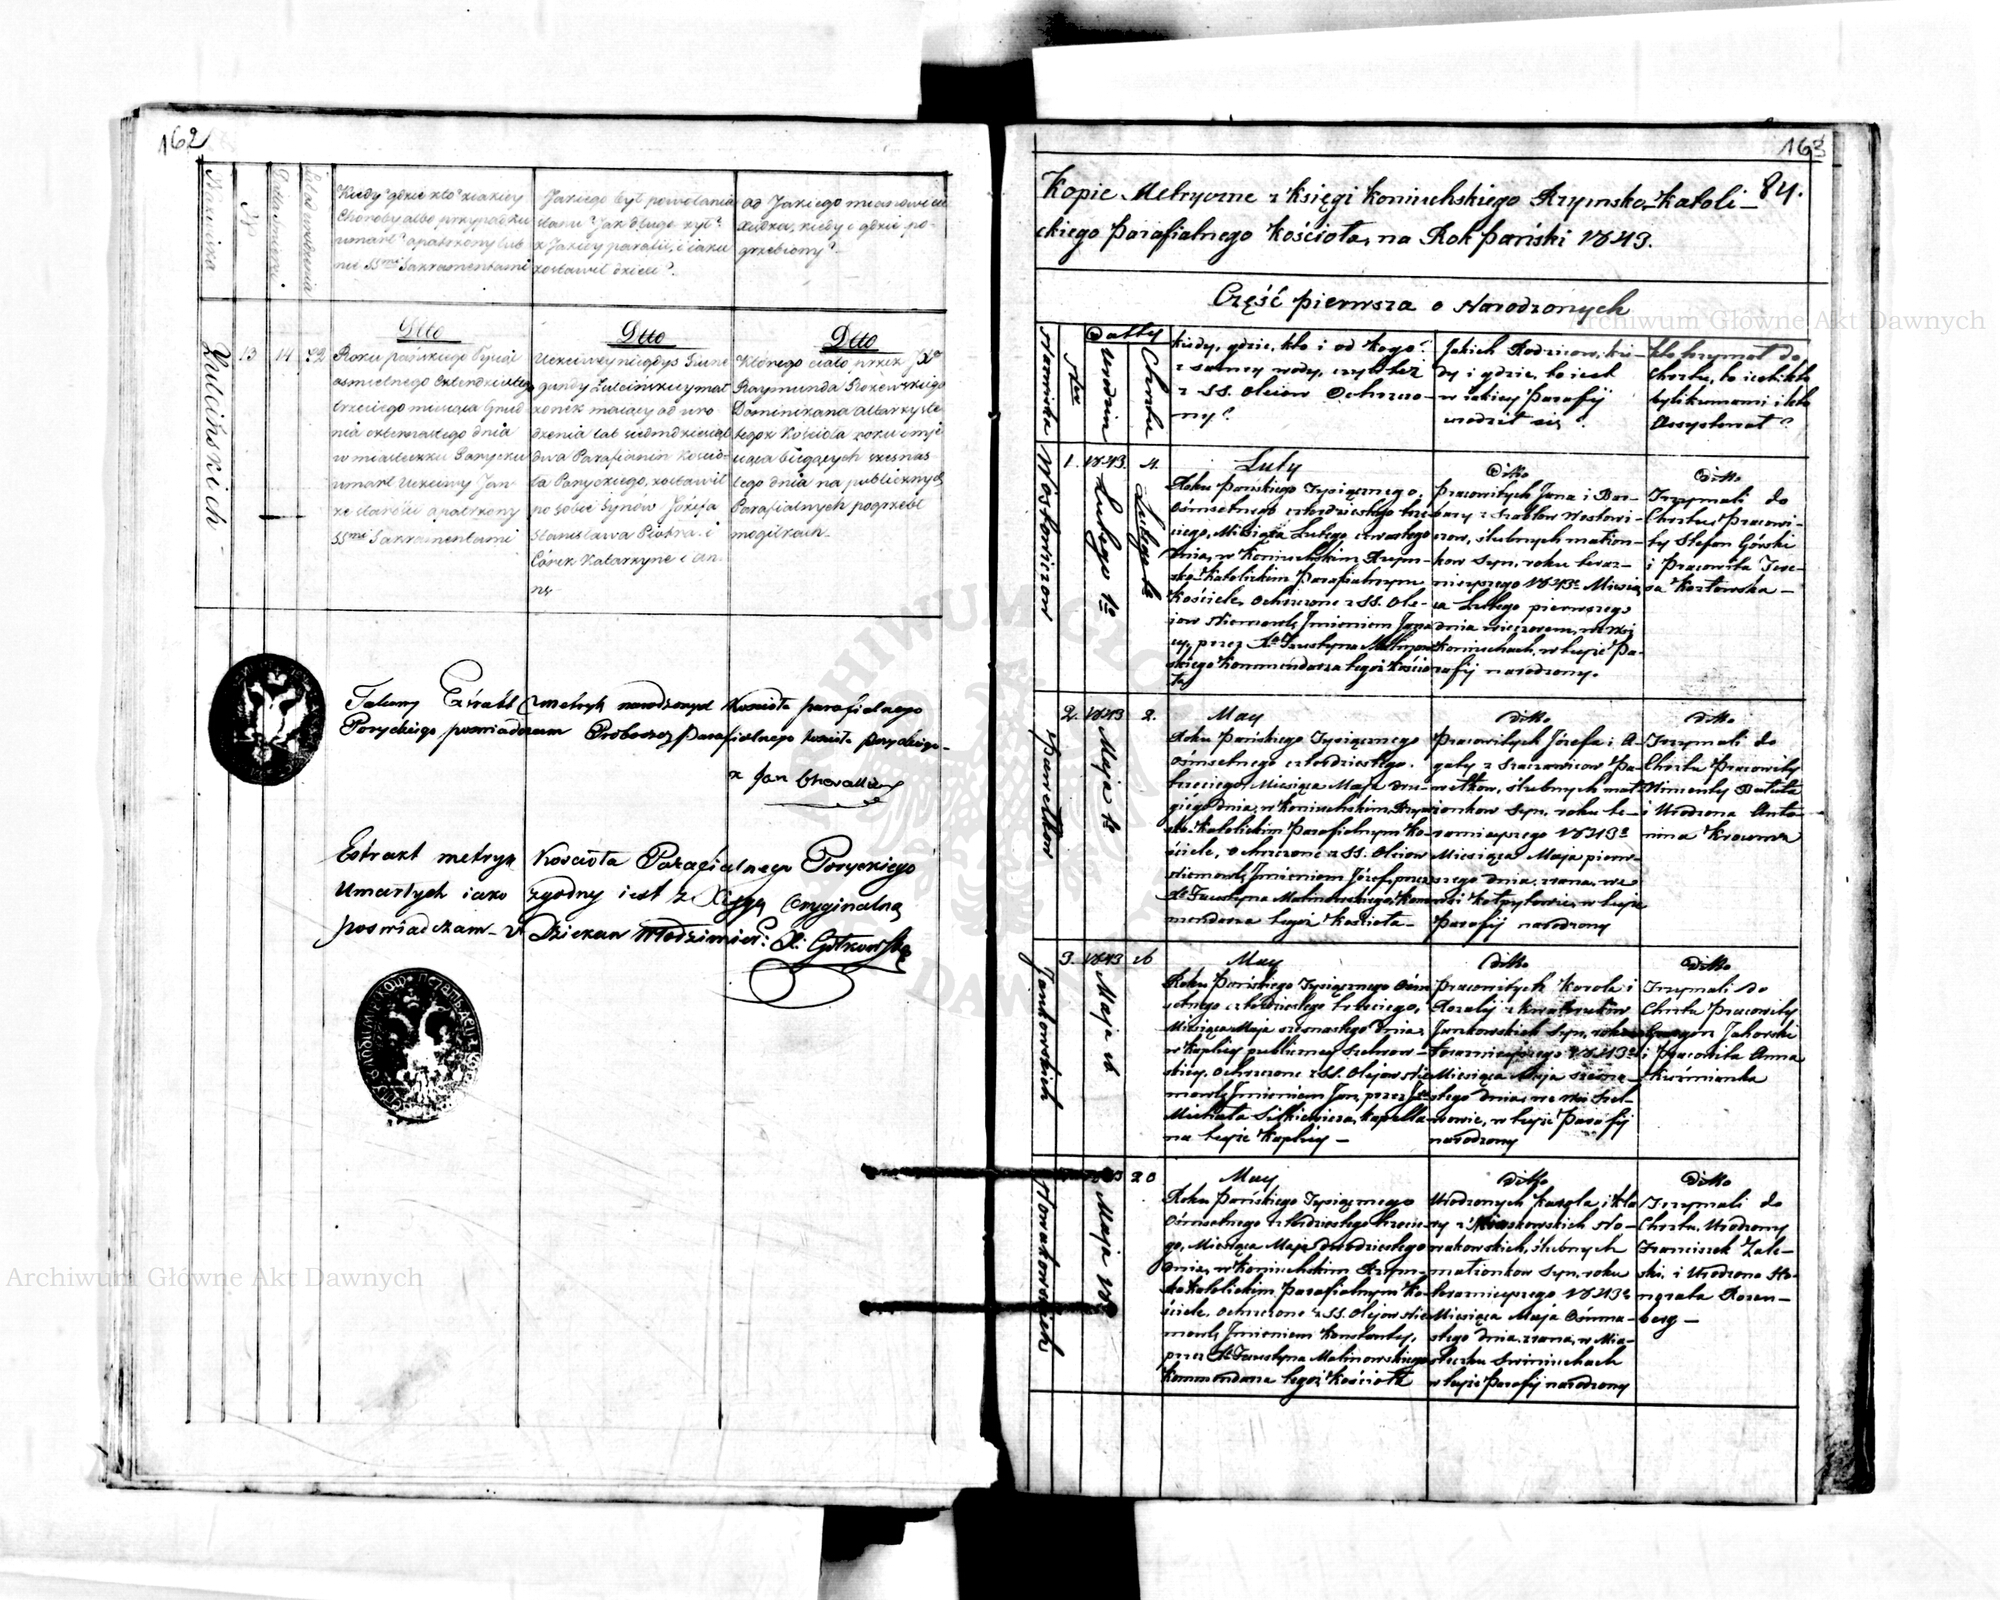 162
Nazwiska
N
Datta Smierci
Lat od urodzenia
Kiedy? gdzie? kto? z jakiey
Choroby albo przypadku
umarł? opatrzony lub
nie SSmi Sakramentami
Jakiego był powołania
stanu? Jak długo żył?
z Jakiey parafii, i iakie
zostawił dzieci?
Od Jakiego mianowicie
xiędza, kiedy i gdzie po-
grzebiony?
Żulcińskich
13
14
72
Dtto
Roku pańskiego tysiąc
osmsetnego czterdziestego
trzeciego miesiąca Grud
nia czternastego dnia
w miasteczku Porycku
umarł Uczciwy Jan
ze starości opatrzony
SSmi Sakramentami
Dtto
Uczciwey niegdys Kune
gundy Żulcińskiey mał
żonek maiący od uro
dzenia lat siedmdziesiąt
dwa Parafianin Kościo-
ła Poryckiego, zostawił
po sobie Synów Józefa
Stanisława Piotra i
Córek Katarzynę i An-
nę
Dtto
Którego ciało przez JXa
Raymunda
Dominikana Altarzystę
tegoż Kościoła roku i mie
siąca bieżących szesnas-
tego dnia na publicznych
Parafialnych pogrzebł
mogiłkach.
Takowy Extrakt z metryk narodzonych Kościoła parafialnego
Poryckiego poswiadczam Proboszcz Parafialnego Kościoła Poryckiego
x Jan
Extrakt metryk Kościoła Parafialnego Poryckiego
Umarłych iako zgodny iest z Xięgą Oryginalną
poswiadczam Dziekan Włodzimier: X: Gutkowski
163
84.
Kopie Metryczne z Księgi Koniuchskiego Rzymsko-Katoli-
ckiego Parafialnego Kościoła, na Rok Pański 1843.
Część pierwsza o Narodzonych
Nazwiska
Datty
Urodzin
Chrztu
Kiedy, gdzie, kto i od kogo?
z samey wody, czyli też
z SS. Oleiow Ochrzczo-
ny?
Jakich Rodzicow, kie-
dy i gdzie, to iest
w iakiey Parafij
urodził się?
Kto trzymał do
Chrztu, to iest: kto
byli kumami i kto
Assystował?
Wóstkowiczow
1.
1843.
Lutego 1o
4.
Lutego
Luty
Roku Pańskiego Tysiącznego,
Ośmsetnego czterdziestego trze
ciego, Miesiąca Lutego czwartego
Dnia, w Koniuchskim Rzym-
sko-Katolickim Parafialnym
Kościele, Ochrzczono z SS. Ole-
iow Niemowlę Jmieniem Jgna
cy, przez Xa Faustyna Malinow
skiego Kommendarza tegoż Kościo
ła
Ditto
Pracowitych Jana i Bar-
bary z Wostowi-
czow, ślubnych małżon-
kow Syn, roku teraz-
nieyszego 1843o Miesią
ca Lutego pierwszego
dnia wieczorem, we Wsi
Koniuchach, w teyże Pa-
rafij narodzony.
Ditto
Trzymali do
Chrztu, Pracowi-
ty Stefan Górski
i Pracowita Tere-
sa Kozłowska
Pawełkow
2.
1843
Maja 1o
2.
May
Roku Pańskiego Tysiącznego
Ośmsetnego czterdziestego
trzeciego, Miesiąca Maja dru-
giego dnia, w Koniuchskim Rzym
sko-Katolickim Parafialnym Ko-
ściele, Ochrzczono z SS. Oleiow
Niemowlę Jmieniem Józef, przez
Xa Faustyna Malinowskiego, Kom-
mendarza tegoż Kościoła
Ditto
Pracowitych Józefa i A-
gaty z Pa-
wełkow, ślubnych mał
żonkow Syn, roku te-
raznieyszego 1843o
Miesiąca Maja pierw-
szego dnia, zrana, we
wsi Kołpytowie, w teyże
Parafij narodzony
Ditto
Trzymali do
Chrztu Pracowity
Wincenty
i Urodzona Anto-
nina
Jankowskich
3.
1843
Maja 16
16
May
Roku Pańskiego Tysiącznego Ośm
setnego czterdziestego trzeciego,
Miesiąca Maja szesnastego dnia,
w Kaplicy publiczney Szelwow-
skiey, Ochrzczono z SS. Olejow Nie
mowlę Jmieniem Jan, przez JXa
Michała Kapella-
na teyże Kaplicy
Ditto
Pracowitych Karola i
Rozalij z
Jankowskich Syn, roku
teraznieyszego 1843o
Miesiąca Maja szesna-
stego dnia, we Wsi Szel-
wowie, w teyże Parafij
narodzony
Ditto
Trzymali do
Chrztu Pracowity
i Pracowita Anna
Nowakowskich
Maja 18
20
May
Roku Pańskiego Tysiącznego
Ośmsetnego Czterdziestego trzecie-
go, Miesiąca Maja dwudziestego
dnia, w Koniuchskim Rzym-
sko Katolickim Parafialnym Ko-
ściele, Ochrzczono z SS. Olejow Nie
mowlę Jmieniem Konstanty,
przez Xa Faustyna Malinowskiego
Kommendarza tegoż Kościoła
Ditto
Urodzonych Karola i Kla-
ry z No-
wakowskich, ślubnych
małżonkow Syn, roku
teraznieyszego 1843o
Miesiąca Maja Ośmna-
stego dnia, zrana, w Mia-
steczku Swiniuchach
w teyże Parafij narodzony
Ditto
Trzymali do
Chrztu, Urodzony
Franciszek Zale-
ski, i Urodzona Ho-
norata Rozen-
berg
Archiwum Główne Akt Dawnych
Archiwum Główne Akt Dawnych